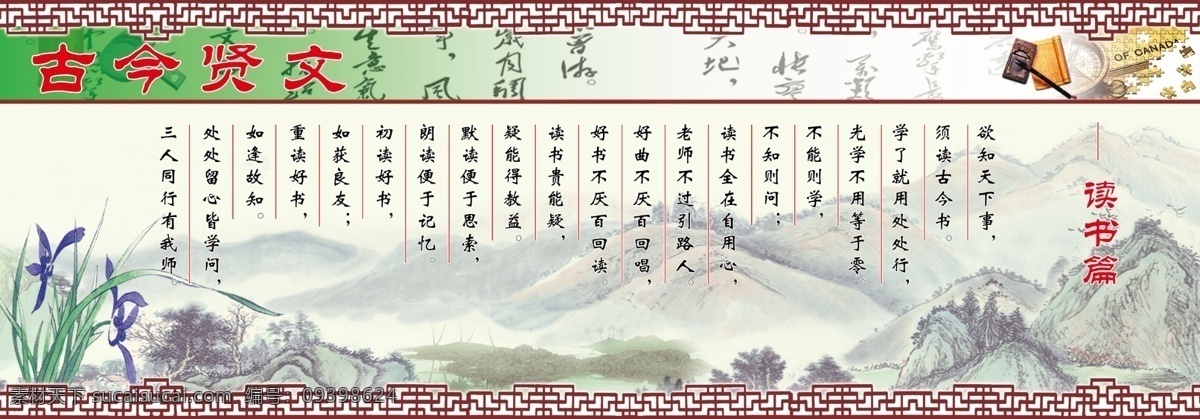 古今贤文
OF CANADA
读书篇
欲知天下事，
须读古今书。
学了就用处处行，
光学不用等于零。
不能则学，
不知则问；
读书全在自用心，
老师不过引路人。
好曲不厌百回唱，
好书不厌百回读。
读书贵能疑，
疑能得教益。
默读便于思索，
朗读便于记忆。
初读好书，
如获良友；
重读好书，
如逢故知。
处处留心皆学问，
三人同行有我师。
素材天下 sucaisucai.com 编号：09398624